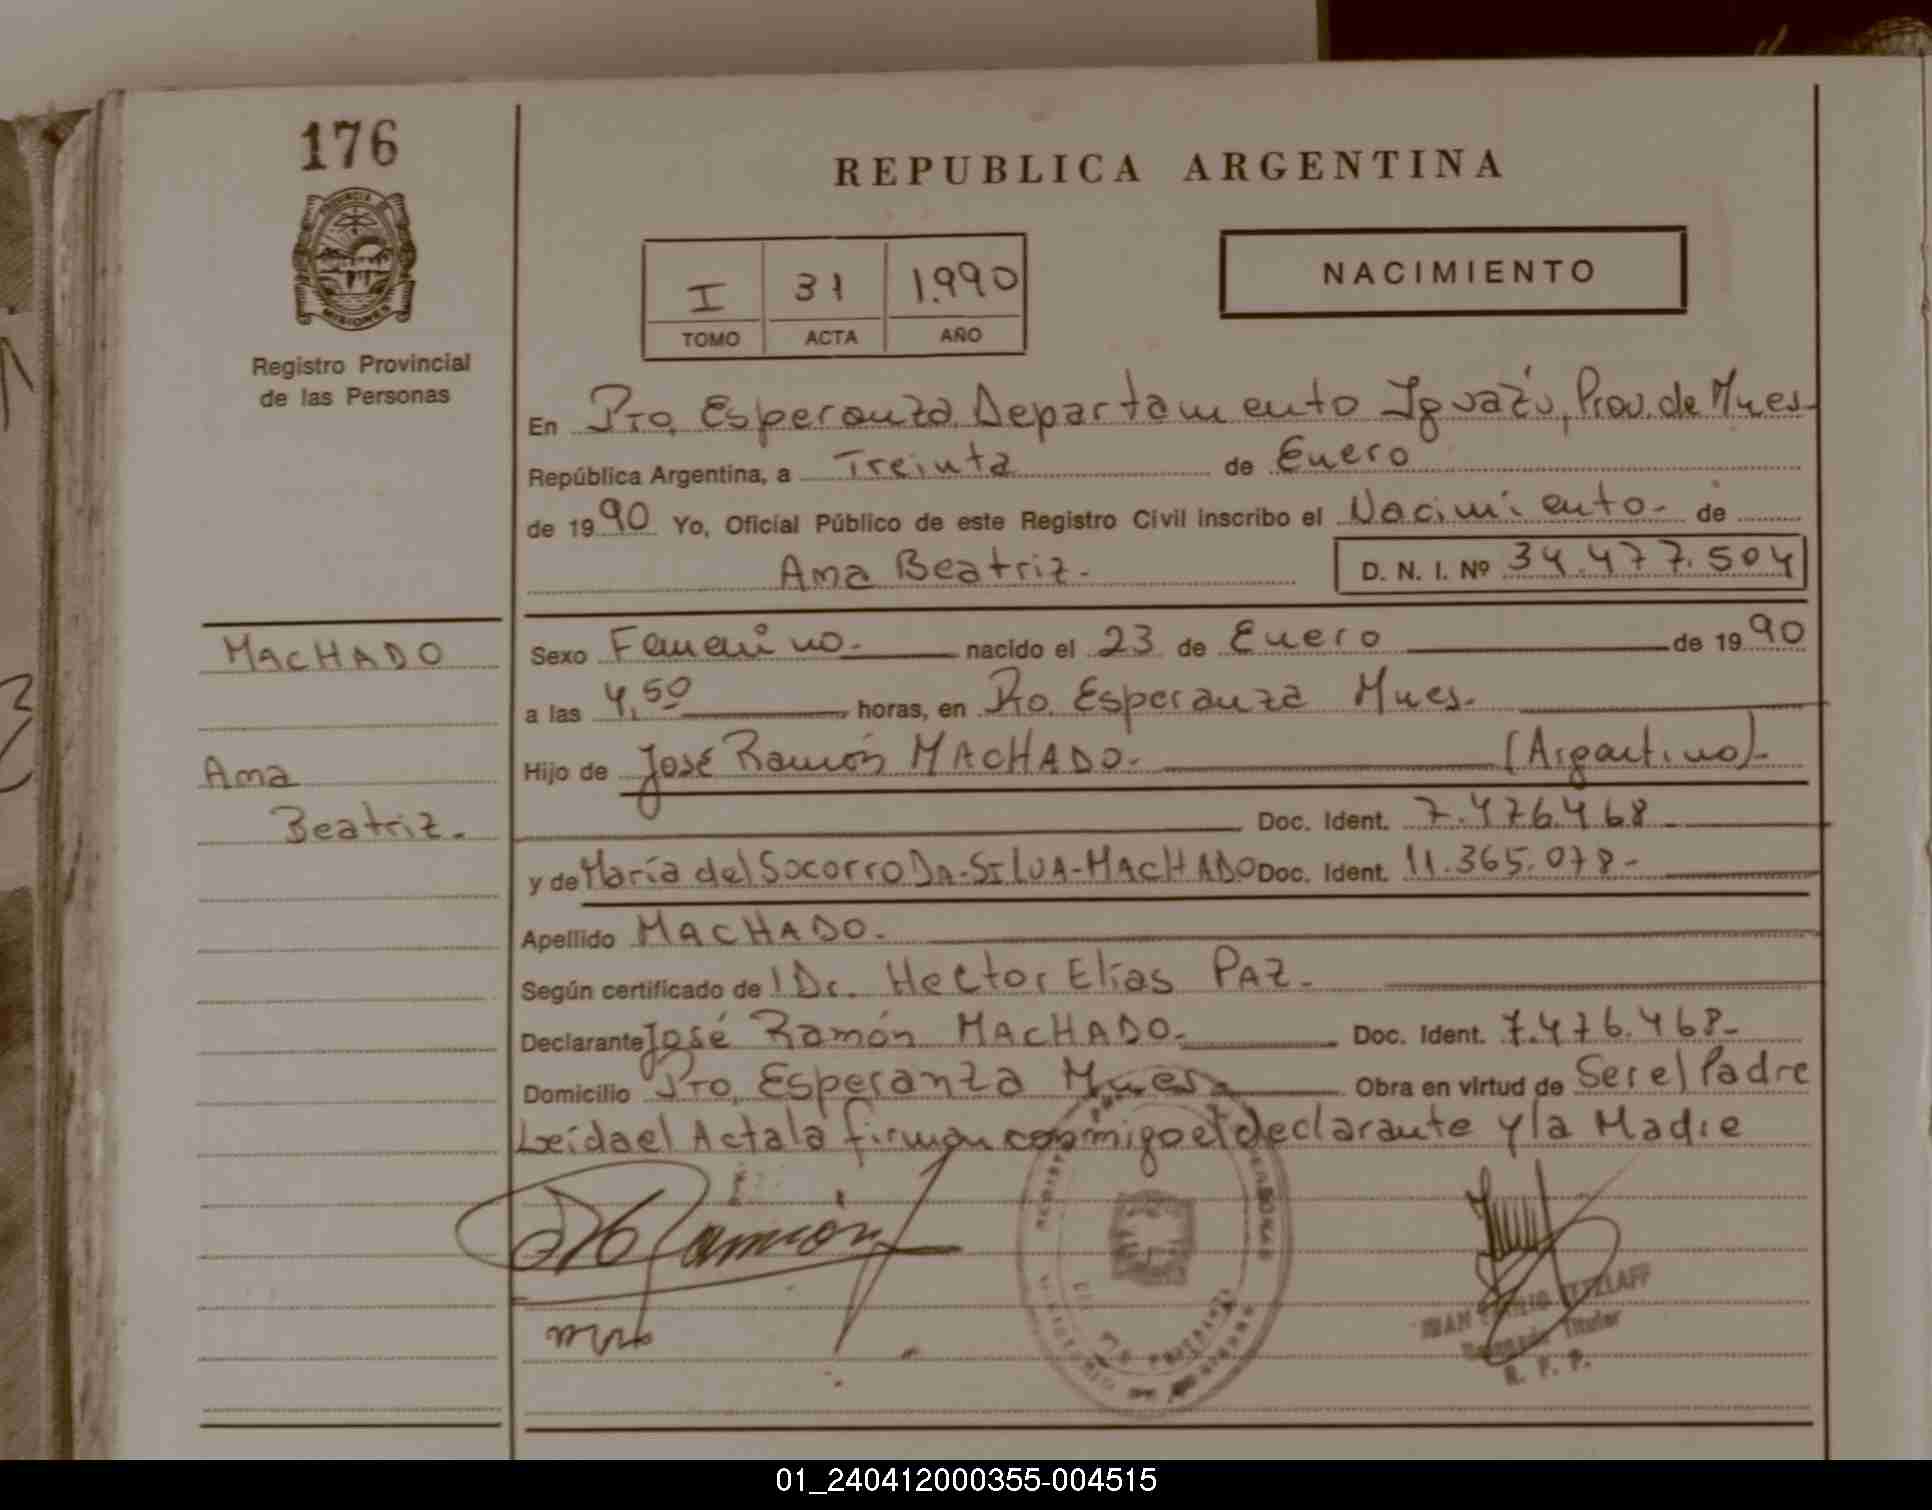 176
REPUBLICA ARGENTINA
PROVINCIA DE
MISIONES
Registro Provincial
de las Personas
I 31 1.990
TOMO ACTA AÑO
NACIMIENTO
En Pto. Esperanza, Departamento Iguazú, Prov. de Mnes-
República Argentina, a Treinta de Enero
de 1990 Yo, Oficial Público de este Registro Civil inscribo el Nacimiento- de
Ama Beatriz. D. N. I. Nº 34.477.504
MACHADO
Ama
Beatriz.
Sexo Femenino. nacido el 23 de Enero de 1990
a las 4,50 horas, en Pto. Esperanza Mnes.
Hijo de José Ramón MACHADO. (Argentino)-
Doc. Ident. 7.476.468
y de María del Socorro DA-SILVA-MACHADO Doc. Ident. 11.365.078-
Apellido MACHADO.
Según certificado de l Dr. Hector Elías PAZ.
Declarante José Ramón MACHADO. Doc. Ident. 7.476.468-
Domicilio Pto. Esperanza Mnes. Obra en virtud de Ser el Padre
Leída el Acta la firman conmigo el declarante y la Madre
Ramón
Titular
R. P. P.
01_240412000355-004515